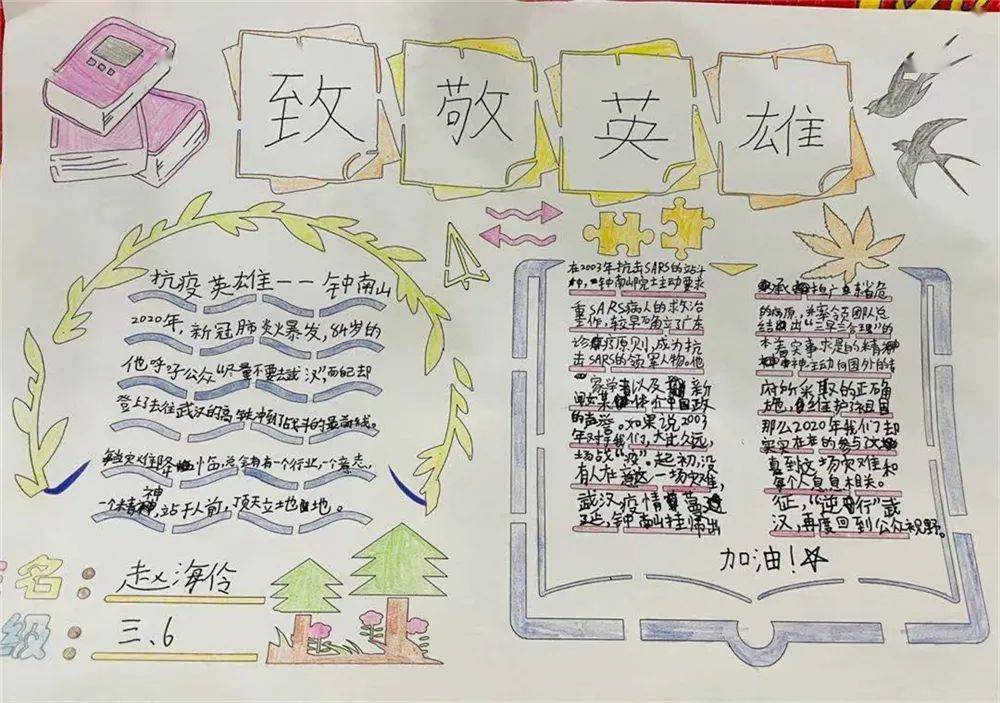 致敬英雄
抗疫英雄——钟南山
2020年,新冠肺炎暴发,84岁的
他呼吁公众“尽量不要去武汉”,而自己却
登上了去往武汉的高铁冲到了战斗的最前线。
每当灾难降临,总会有有一个行业,一个意志,
一个精神,站于人前,顶天立地。
名:赵海伶
级:三、6
在2003年抗击SARS的战斗
种,钟南山院士主动要求
重SARS病人的救治
工作,较早确立了广东
诊疗原则,成为抗
击SARS的领军人物。他
承担广东省危
的病原,并率领团队总
结出“三早三合理”的
本着实事求是的精神
主动向国外的
易学者以及新
闻媒体介中国政
的声誉。如果说2003
年对于我们,太过久远,
场战“疫”。起初,没
有人在意这一场灾难,
武汉疫情蔓
延,钟南山挂帅出
府所采取的正确
施,维护了祖国
那么2020年我们却
实实在在的参与这
直到这场灾难和
每个人息息相关。
征,“逆行”武
汉,再度回到公众视野。
加油!